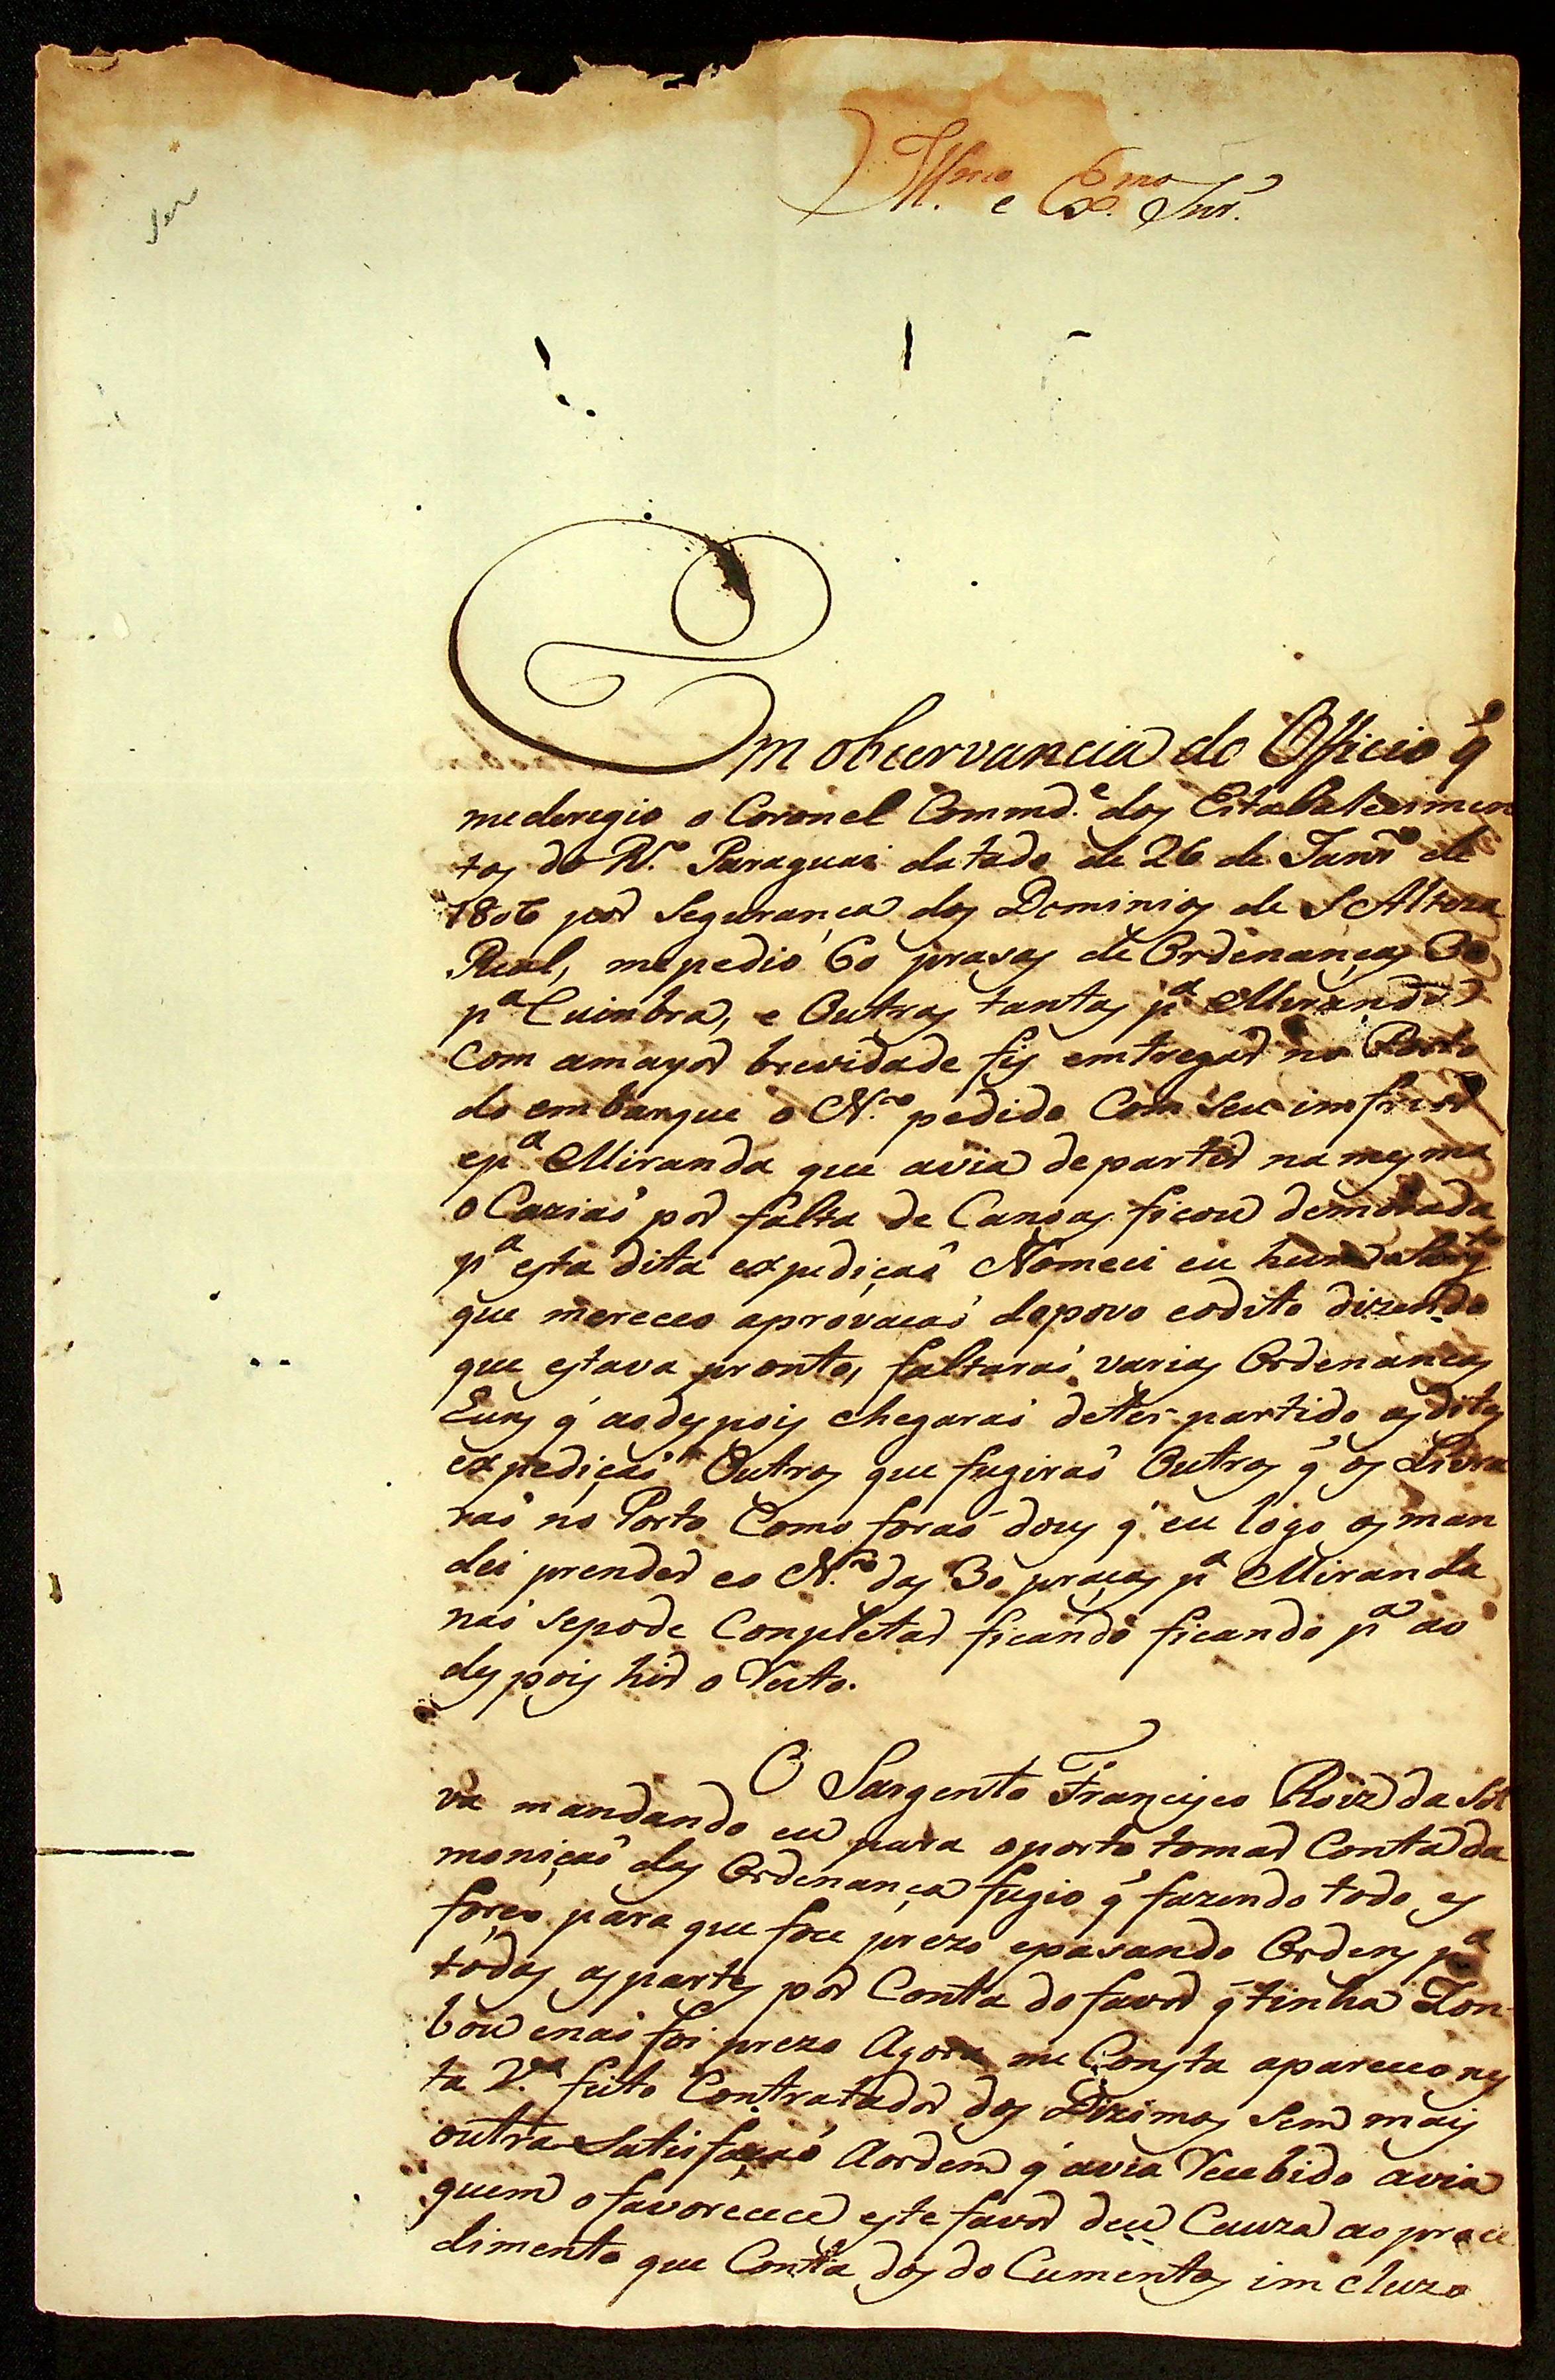 Ill.mo e Ex.mo Snr.
Em obcervancia do Officio q̃
mederegio o Coronel Commd.e dos Estabalecimen
tos do R.o Paraguai datado de 26 de Janr.o de
1806 por Segurança dos Dominios de S Alteza
Real, mepedio 60 prasas de Ordenanças 30
p.a Cuimbra, e Outras tantas p.a Miranda
com amayor brevidade fis emtregar no Porto
do embarque o N.ro pedido Com seu imfrior
ep.a Miranda que avia departir na mesma
o Caziaó por falta de Canoas ficou demorada
p.a esta dita expediçaó Nomeei eu hum Sarg.to
que mereceo aprovacaó dopovo eodito dizendo
que estava pronto, faltaraó varias Ordenancas
Euns q̃ aodespois chegaraó deter partido as ditas
expediçaó Outros que fugiraó Outros q̃ os Livra
raó no Porto Como foraó dous q̃ eu logo os man
dei prender eo N.ro das 30 praças p.a Miranda
naó sepode Conpletar ficando ficando p.a ao
despois hir o Resto.
O Sargento Francisco Roiz da Sil
va mandando eu para oporto tomar Conta da
moniçaó des Ordenança fugio q̃ fazendo todo es
forço para que foce prezo epasando Ordens p.a
todas aspartes por Conta do favor q̃ tinha Zon
bou enaó foi prezo Agora me Consta apareceo nes
ta V.a feito Contratador dos Dizimos Sem mais
outra Satisfaçaó Aordem q̃ avia Recebido avia
quem o favorecece este favor deu Cauza ao proce
dimento que Conta dos do Cumentos imcluzo